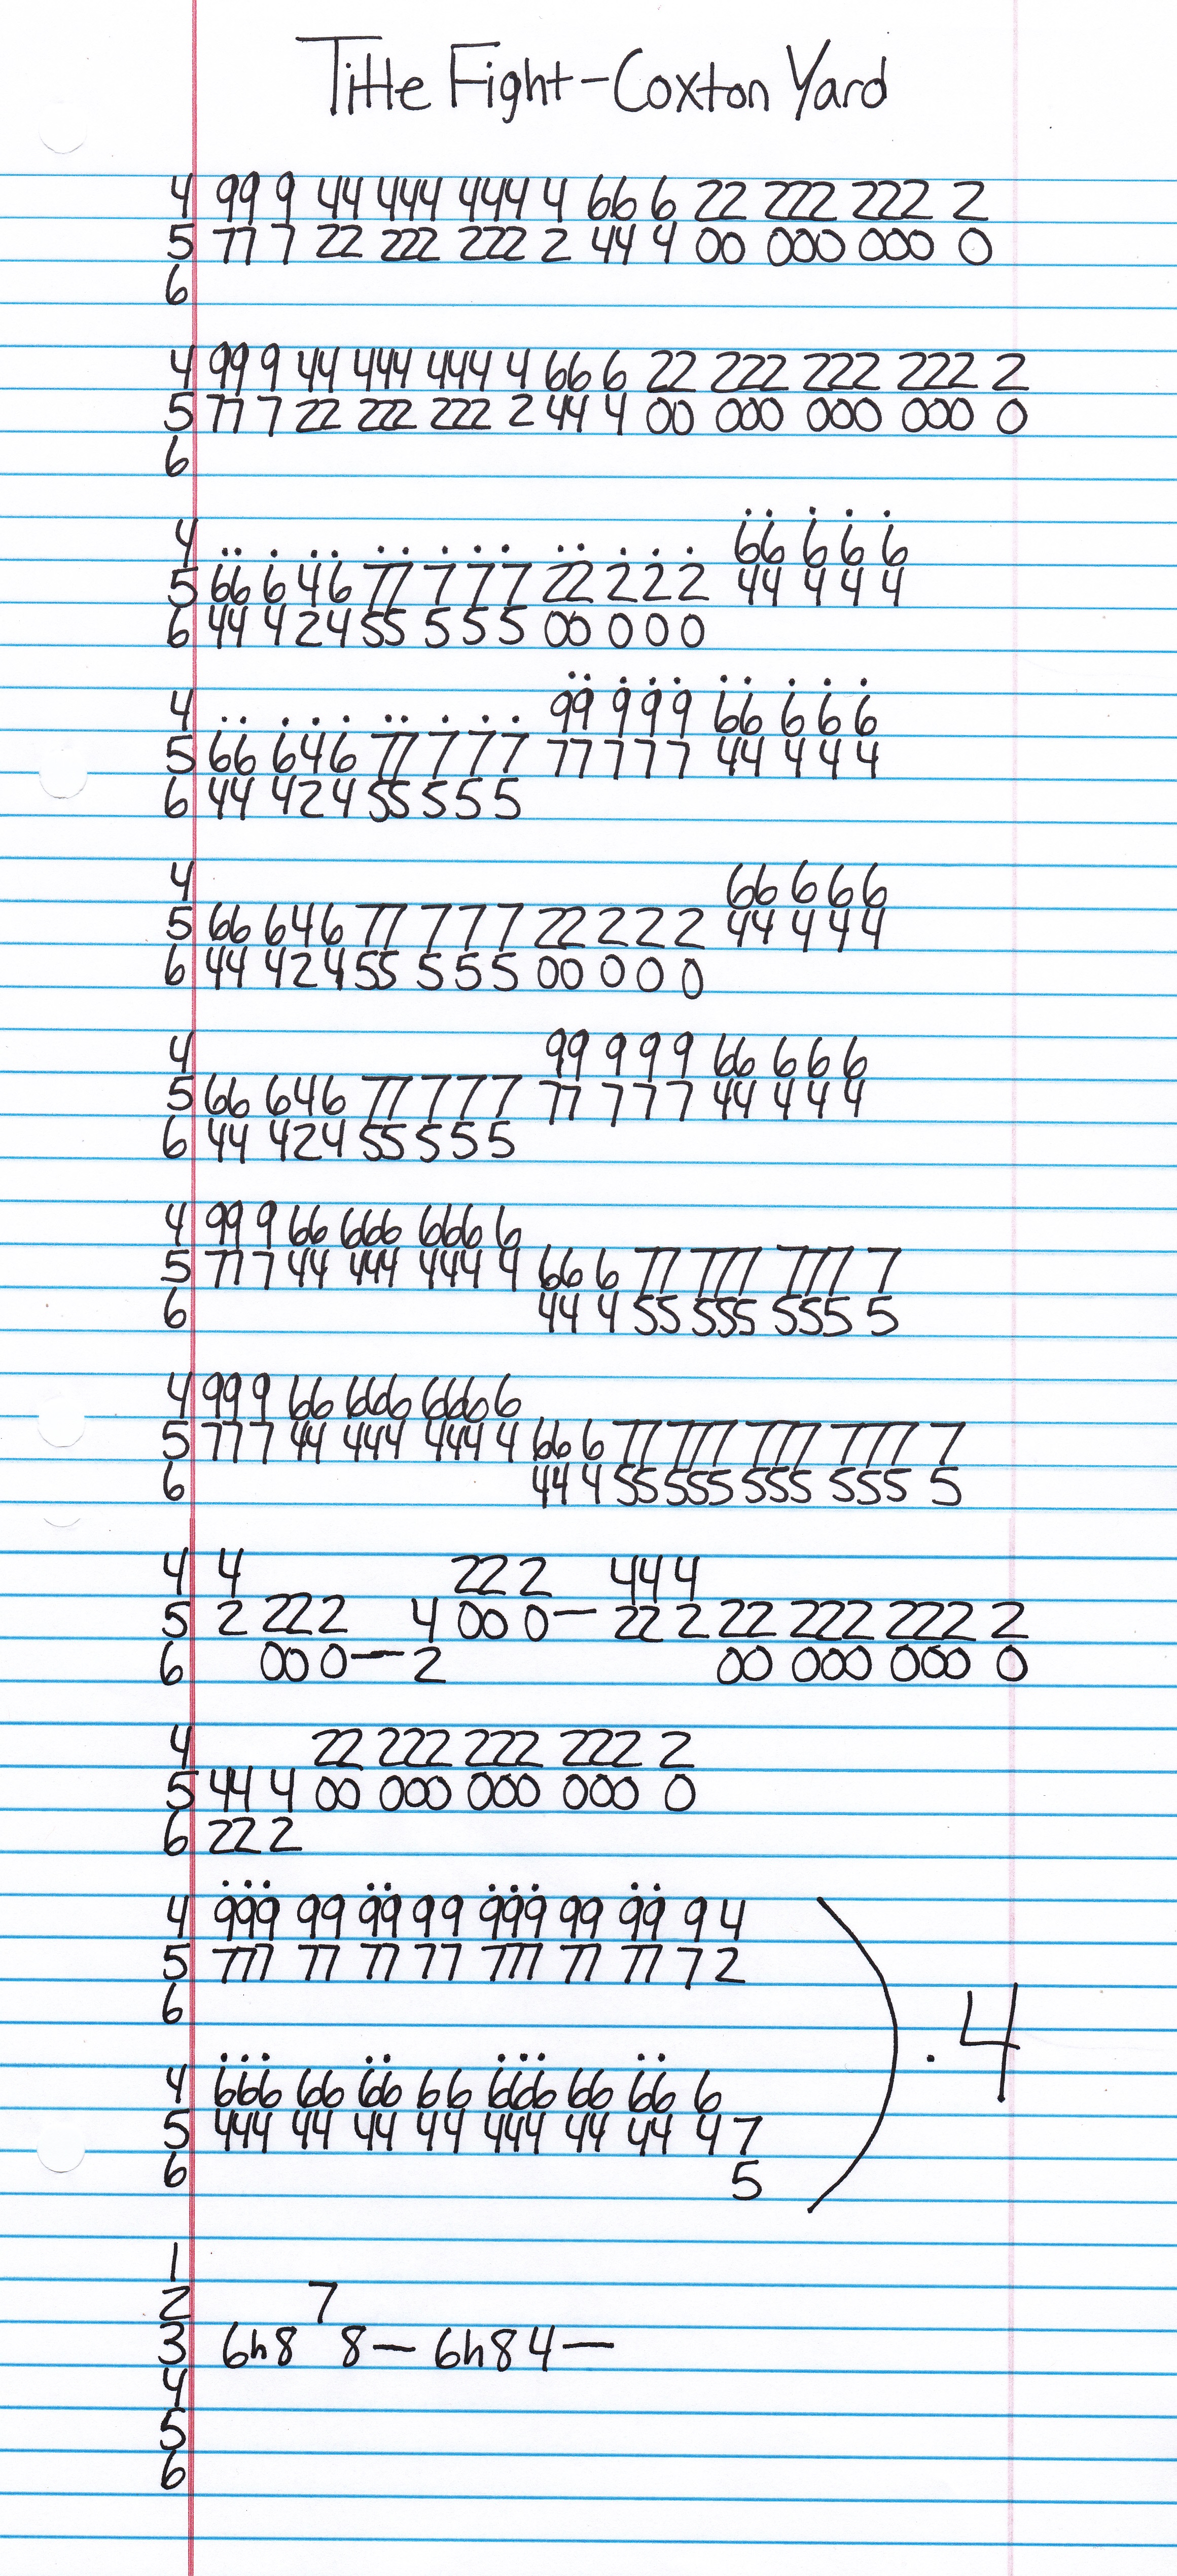 Title Fight-Coxton Yard
4 99 9 44 444 444 4 66 6 22 222 222 2
5 77 7 22 222 222 2 44 4 00 000 000 0
6
4 99 9 44 444 444 4 66 6 22 222 222 222 2
5 77 7 22 222 222 2 44 4 00 000 000 000 0
6
4 .. . .. .. . . . .. . . . 66 6 6 6
5 66 6 4 6 77 7 7 7 22 2 2 2 44 4 4 4
6 44 4 2 4 55 5 5 5 00 0 0 0
4 .. . . . .. . . . 99 9 9 9 66 6 6 6
5 66 6 4 6 77 7 7 7 77 7 7 7 44 4 4 4
6 44 4 2 4 55 5 5 5
4 66 6 6 6
5 66 6 4 6 77 7 7 7 22 2 2 2 44 4 4 4
6 44 4 2 4 55 5 5 5 00 0 0 0
4 99 9 9 9 66 6 6 6
5 66 6 4 6 77 7 7 7 77 7 7 7 44 4 4 4
6 44 4 2 4 55 5 5 5
4 99 9 66 666 666 6
5 77 7 44 444 444 4 66 6 77 777 777 7
6 44 4 55 555 555 5
4 99 9 66 666 666 6
5 77 7 44 444 444 4 66 6 77 777 777 777 7
6 44 4 55 555 555 555 5
4 4 22 2 44 4
5 2 22 2 4 00 0— 22 2 22 222 222 2
6 00 0— 2 00 000 000 0
4 22 222 222 222 2
5 44 4 00 000 000 000 0
6 22 2
4 999 99 99 99 999 99 99 9 4
5 777 77 77 77 777 77 77 7 2
6
.4
4 666 66 66 66 666 66 66 6
5 444 44 44 44 444 44 44 4 7
6 5
1
2 7
3 6h8 8— 6h8 4—
4
5
6